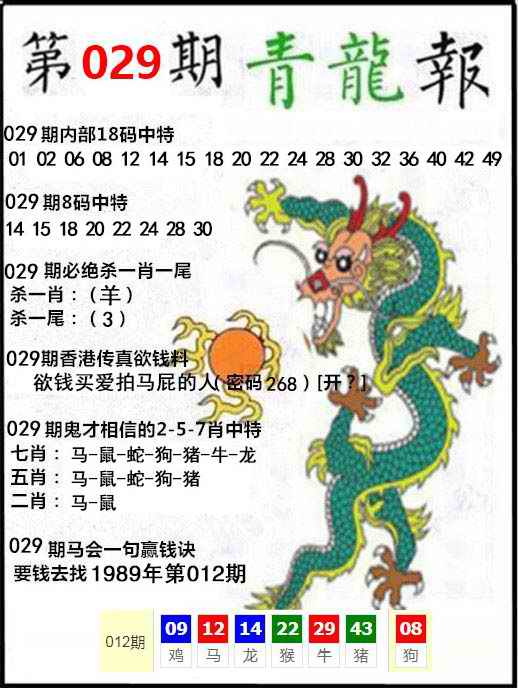 第029期青龍報
029期内部18码中特
01 02 06 08 12 14 15 18 20 22 24 28 30 32 36 40 42 49
029期8码中特
14 15 18 20 22 24 28 30
029期必绝杀一肖一尾
杀一肖：（羊）
杀一尾：（3）
029期香港传真欲钱料
欲钱买爱拍马屁的人（密码268）[开？]
029期鬼才相信的2-5-7肖中特
七肖：马-鼠-蛇-狗-猪-牛-龙
五肖：马-鼠-蛇-狗-猪
二肖：马-鼠
029期马会一句赢钱诀
要钱去找1989年第012期
012期
09 12 14 22 29 43 08
鸡 马 龙 猴 牛 猪 狗